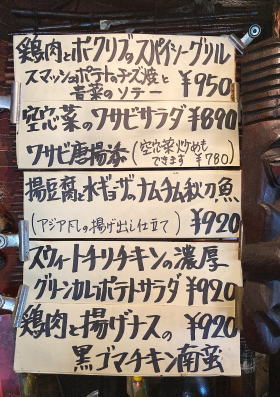 鶏肉とポークリブのスパイシーグリル
スマッシュポテトのチーズ焼と
青菜のソテー ¥950
空芯菜のワサビサラダ ¥890
ワサビ唐揚添(空芯菜炒めも
できます ¥780)
揚豆腐と水ギョーザのナムチム秋刀魚
(アジア下しの揚げ出し仕立て) ¥920
スウィートチリチキンの濃厚
グリーンカレーポテトサラダ ¥920
鶏肉と揚げナスの ¥920
黒ゴマチキン南蛮